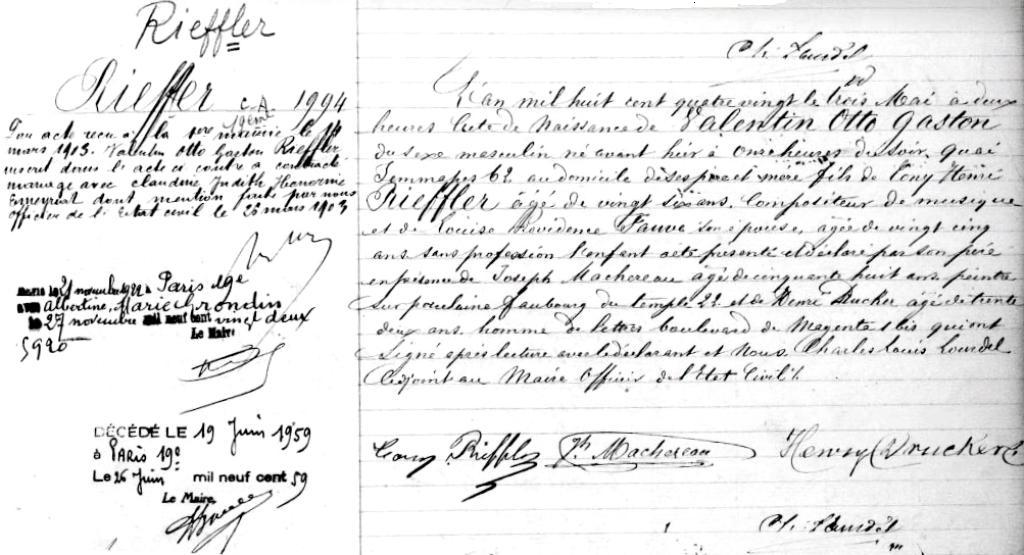 Rieffler
Rieffler C.A. 1994
19eme
Par acte reçu à la 19me mairie le 14
mars 1903. Valentin Otto Gaston Rieffler
inscrit dans l'acte ci contre a contracté
mariage avec Claudine Judith Honorine
dont mention faite par nous
officier de l'Etat civil le 26 mars 1903
Marié le 21 novembre 1922 à Paris 19e
avec Albertine, Marie Grondin
le 27 novembre mil neuf cent vingt deux
5920
Le Maire
DÉCÉDÉ LE 19 Juin 1959
à Paris 19e
Le 26 Juin mil neuf cent 59
Le Maire,
Ch. Lourdel
L'an mil huit cent quatre vingt le trois Mai à deux
heures Acte de Naissance de Valentin Otto Gaston
du sexe masculin né avant hier à onze heures du soir, quai
Jemmapes 62 au domicile de ses père et mère fils de Tony Henri
Rieffler âgé de vingt six ans, Compositeur de musique
et de Louise Providence Fauva son épouse, agée de vingt cinq
ans sans profession L'enfant a été présenté et déclaré par son père
en présence de Joseph Machereau agé de cinquante huit ans peintre
sur porcelaine faubourg du temple 22 et de Henri Drucker agé de trente
deux ans, homme de lettres boulevard de Magenta 1 bis qui ont
signé après lecture avec le déclarant et Nous, Charles Louis Lourdel
adjoint au Maire Officier de l'Etat Civil
Tony Rieffler Jh Machereau Henry Drucker
Ch. Lourdel